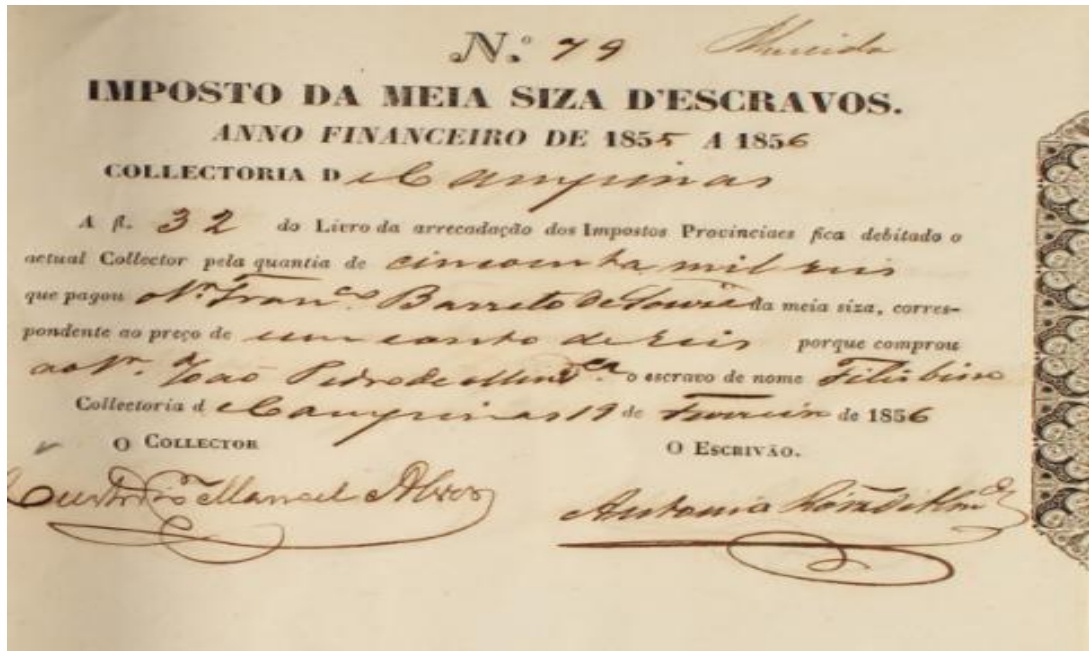 N.º 79 Almeida
IMPOSTO DA MEIA SIZA D'ESCRAVOS.
ANNO FINANCEIRO DE 1855 A 1856
COLLECTORIA D e Campinas
A fl. 32 do Livro da arrecadação dos Impostos Provinciaes fica debitado o
actual Collector pela quantia de cincoenta mil reis
que pagou o Sr. Fran.co Barreto de Souza da meia siza, corres-
pondente ao preço de um conto de reis porque comprou
ao Sr. João Pedro de o escravo de nome
Collectoria d e Campinas 19 de Fevereiro de 1856
O COLLECTOR O ESCRIVÃO.
Manoel Alves Antonio